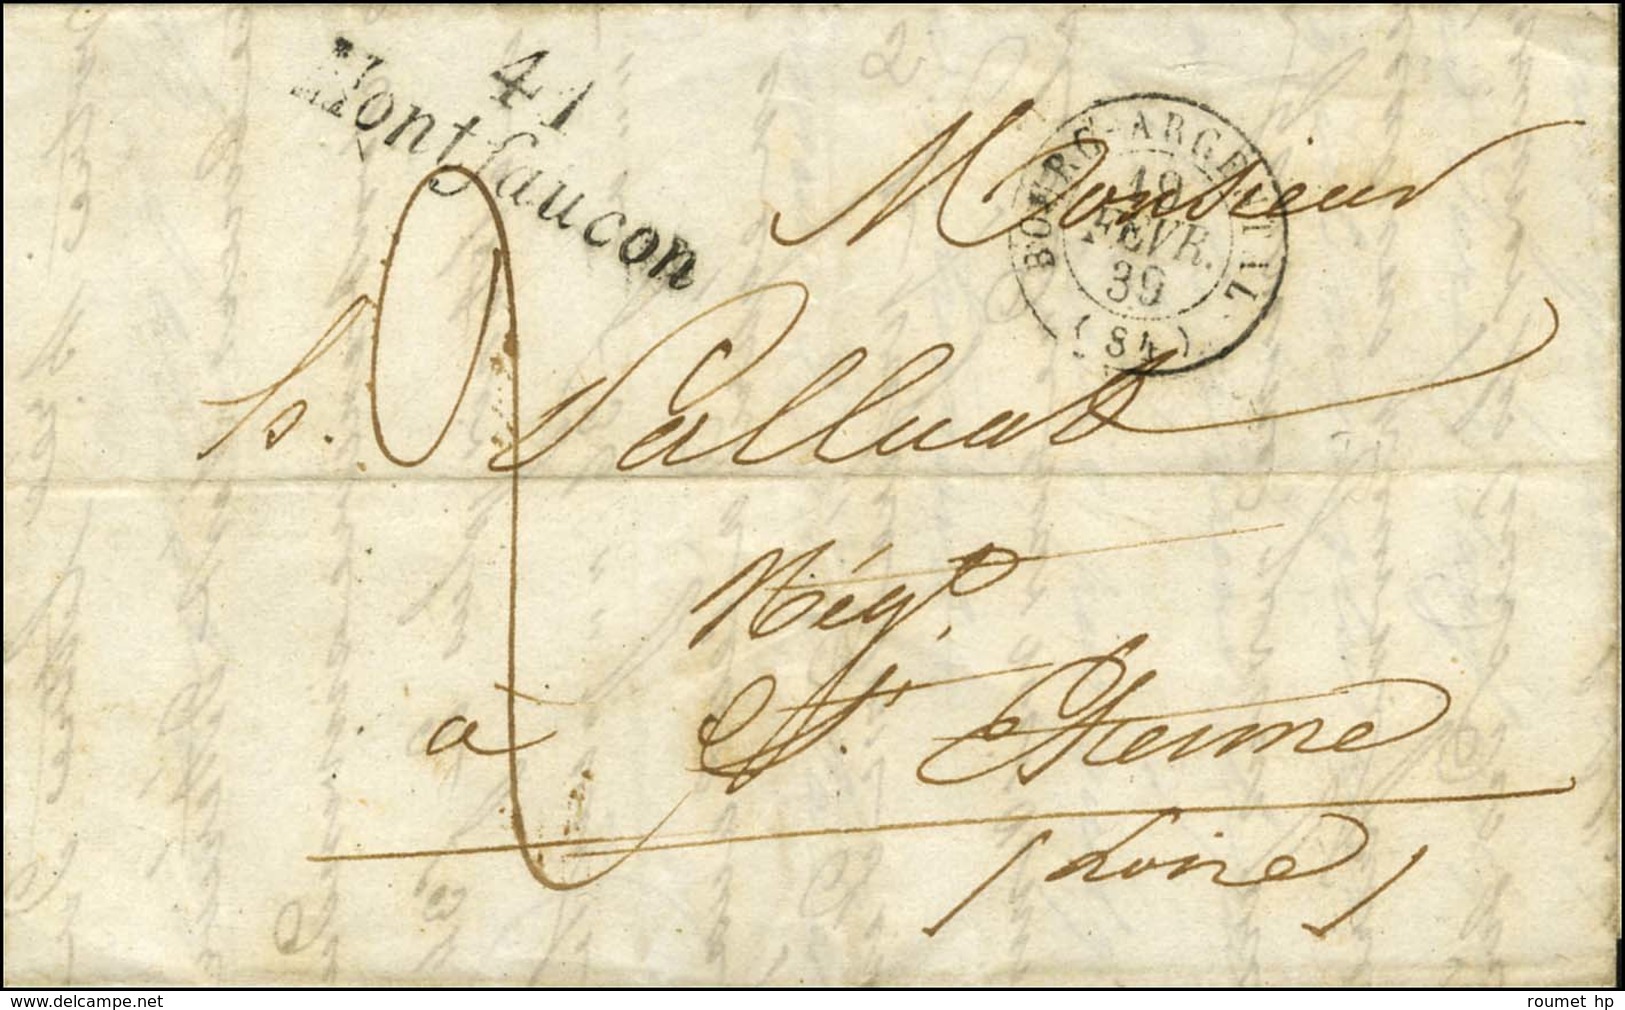 41
Montfaucon
BOURG-ARGENTAL
19
FEVR.
39
(84)
Monsieur
h. Palluat
Négt.
à St. Etienne
(Loire)
2
www.delcampe.net
roumet hp